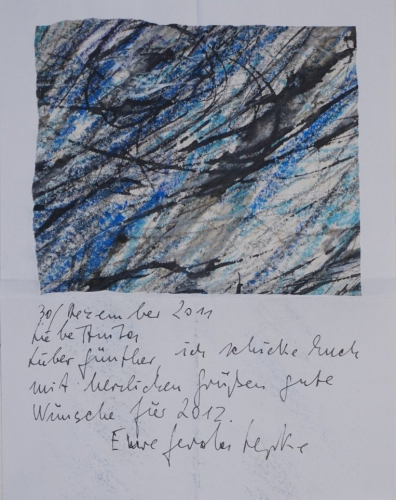 30/Dezember 2011
Liebe
Lieber Günther, ich schicke Euch
mit herzlichen Grüßen gute
Wünsche für 2012.
Eure